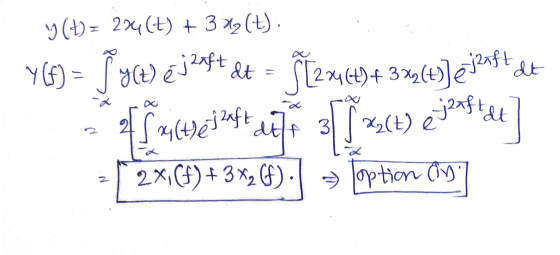 y(t) = 2x₁(t) + 3x₂(t).
Y(f) = ∫_{-∞}^{∞} y(t) e^{-j2πft} dt = ∫_{-∞}^{∞} [2x₁(t) + 3x₂(t)] e^{-j2πft} dt
= 2[∫_{-∞}^{∞} x₁(t) e^{-j2πft} dt] + 3[∫_{-∞}^{∞} x₂(t) e^{-j2πft} dt]
= 2X₁(f) + 3X₂(f). ⇒ option (iv).